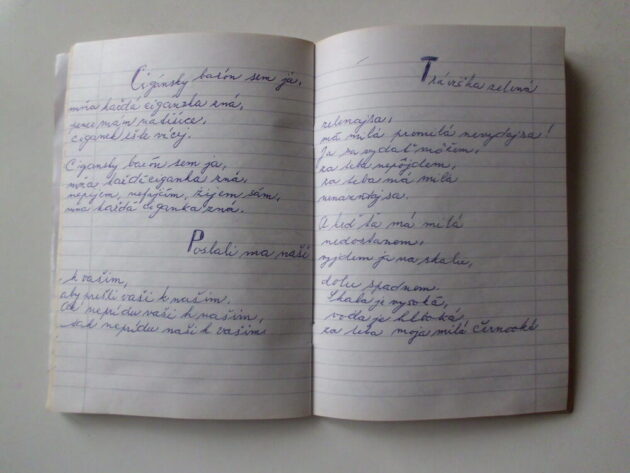 Cigánsky barón sem ja,
mňa každá ciganka zná,
peňez mám na tisíce,
ciganek ešte vícej.
Cigansky barón sem ja,
mňa každá ciganka zná,
nepijem, nefajčím, žijem sám,
mňa každá ciganka zná.
Poslali ma naši
k vašim,
aby prešli vaši k našim.
Ak neprídu vaši k našim,
tak neprídu naši k vašim.
Trávička zelená
zelenaj sa,
má milá premilá nevydaj sa!
Ja sa vydali
za teba nepôjdem,
za teba má milá
A keď ťa má milá
nedostanem,
vyjdem ja na skalu,
dolu spadnem.
Skala je vysoká,
voda je hlboká
za teba moja milá černooká